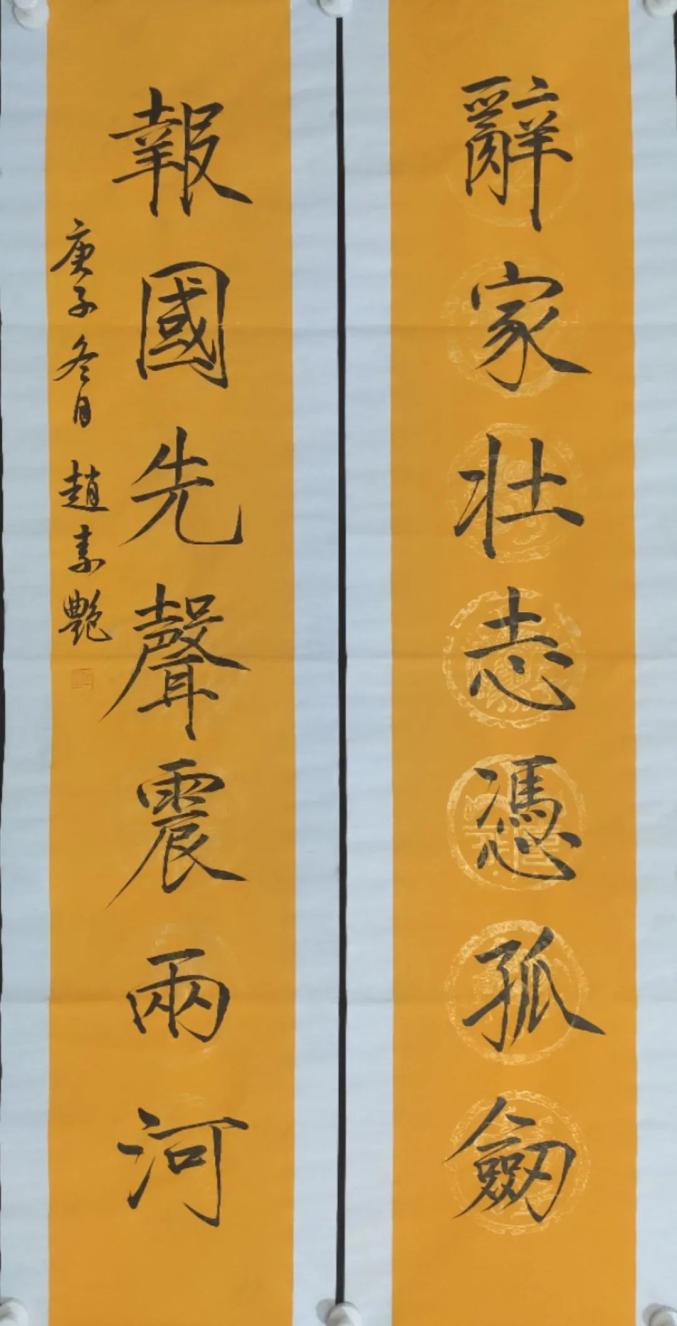 辭家壯志憑孤劔
報國先聲震兩河
庚子冬月 趙素艷